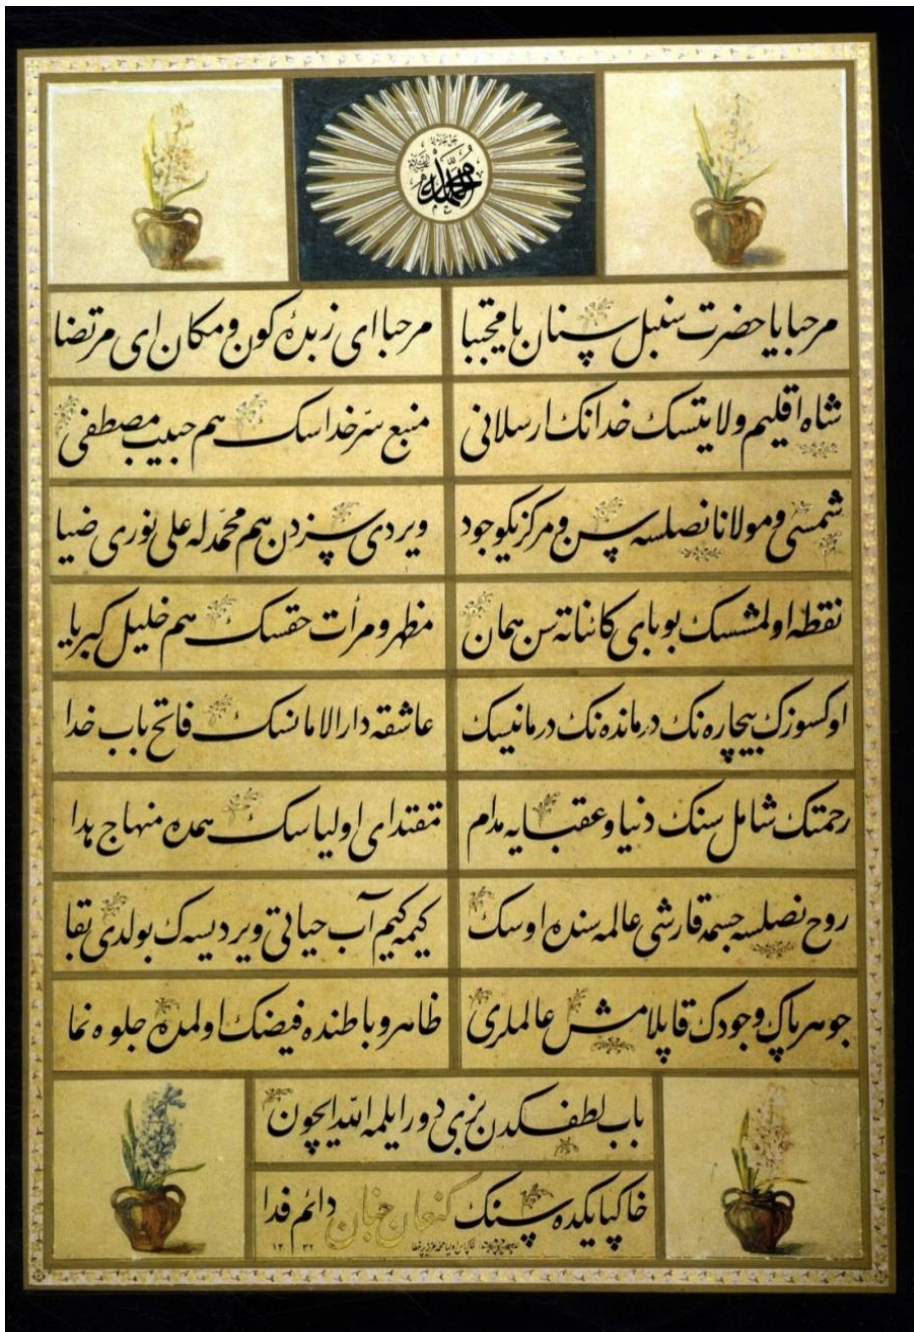 محمد
مرحبا يا حضرت سنبل سنان يا مجتبا
مرحبا اى زبدهٔ كون و مكان اى مرتضا
شاه اقليم ولايتسك خدانك ارسلانى
منبع سرّ خداسك هم حبيب مصطفى
شمسى و مولانا نصلسه سن و مركز يكوجود
ويردى سزدن هم محمّدله على نورى ضيا
نقطه اولمشسك بو باى كائناته سن همان
مظهر و مرأت حقسك هم خليل كبريا
اوكسوزك بيچاره نك درمانده نك درمانيسك
عاشقه دار الامانسك فاتح باب خدا
رحمتك شامل سنك دنيا و عقبايه مدام
مقتداى اولياسك همده منهاج هدا
روح نصلسه جسمه قارشى عالمه سنده اوسك
كيمه كيم آب حياتى ويرديسه ك بولدى بقا
جوهر پاك وجودك قاپلامش عالملرى
ظاهر و باطنده فيضك اولمده جلوه نما
باب لطفكدن بزى دور ايلمه الله ايچون
خاكپايكده سنك كنعان جهان دائم فدا
١٣٣٢